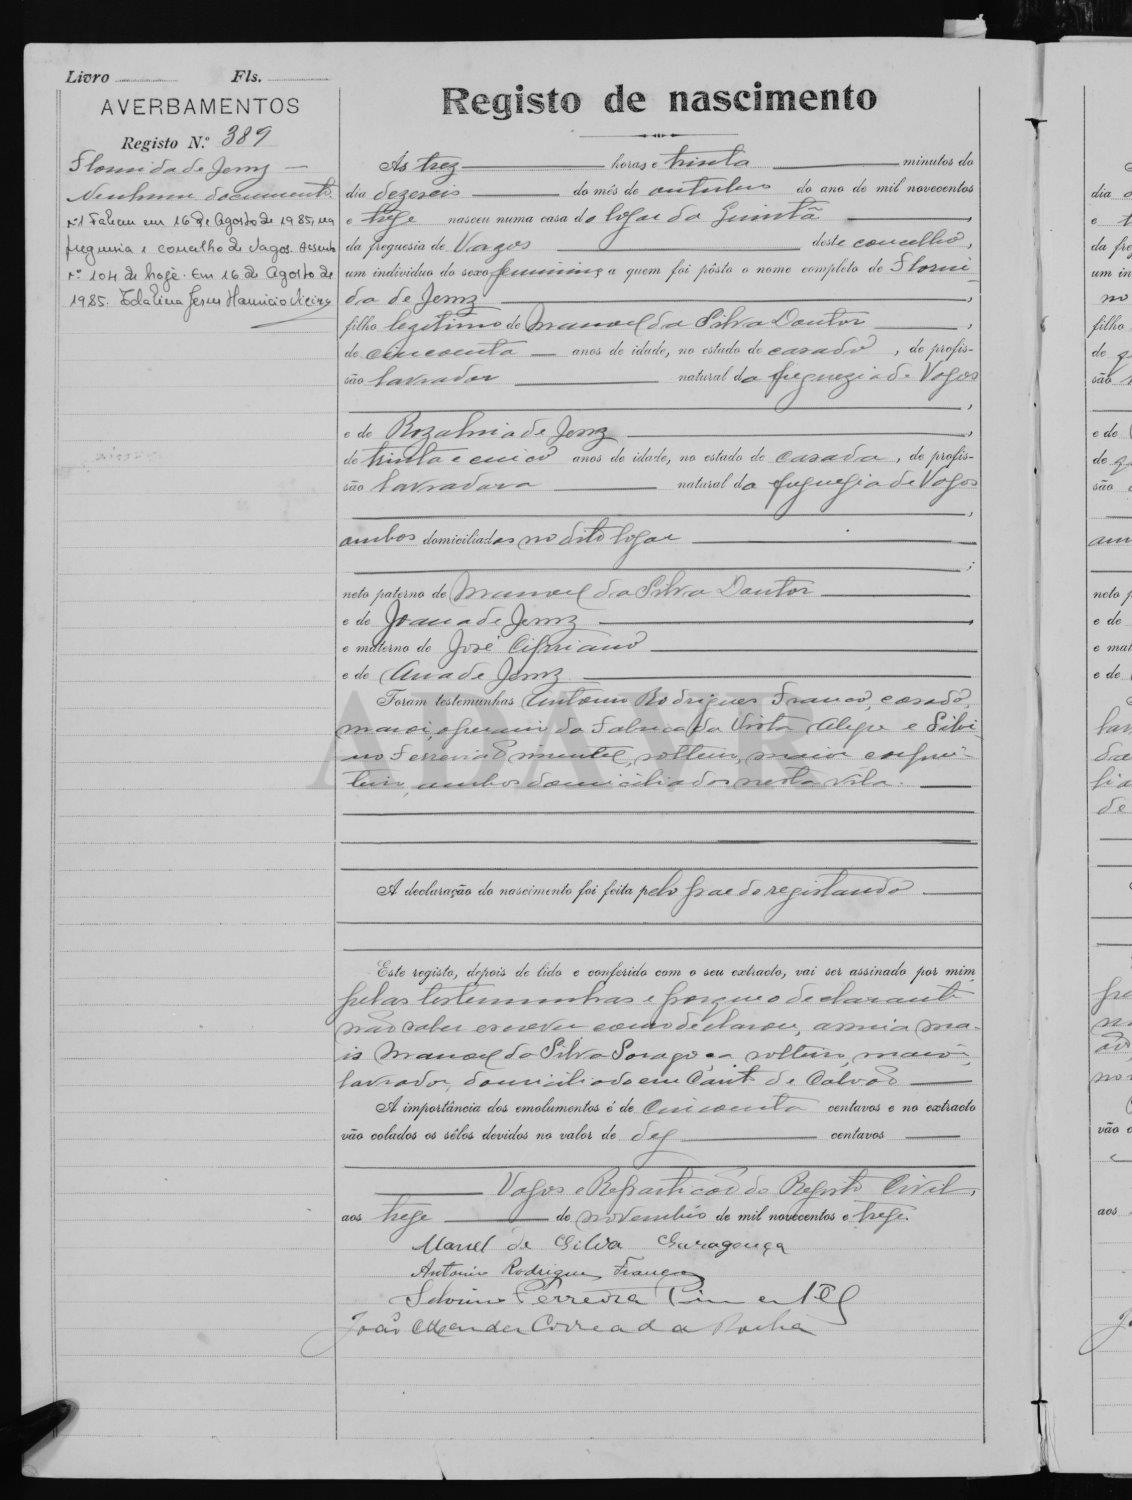 Livro Fls.
AVERBAMENTOS
Registo N.º 389
Florinda de Jesus
Nenhum documento.
Nº1 Faleceu em 16 de Agosto de 1985, na
freguesia e concelho de Vagos. Assento
nº 104 de hoje. Em 16 de Agosto de
1985.
Registo de nascimento
Ás trez horas e trinta minutos do
dia dezeseis do mês de outubro do ano de mil novecentos
e treze nasceu numa casa do logar da Quintã,
da freguesia de Vagos deste concelho,
um individuo do sexo feminino a quem foi pôsto o nome completo de Florin
da de Jesus,
filho legitimo de Manoel da Silva Doutor,
de cincoenta anos de idade, no estado de casado, de profis-
são lavrador natural da freguezia de Vagos
,
e de Rozalina de Jesus,
de trinta e cinco anos de idade, no estado de casada, de profis-
são lavradora natural da freguezia de Vagos
,
ambos domiciliados no dito logar
;
neto paterno de Manoel da Silva Doutor
e de Joana de Jesus,
e materno de José Cipriano
e de Ana de Jesus
Foram testemunhas Antonio Rodrigues Franco, casado,
maior, operario da Fabrica da Vista Alegre e Silvi-
no Ferreira Pimentel, solteiro, maior
ambos domiciliados nesta vila.
A declaração do nascimento foi feita pelo pae do registando
Este registo, depois de lido e conferido com o seu extracto, vai ser assinado por mim
pelas testemunhas e porque o declarante
não saber escrever como declarou, assina ma-
is Manoel da Silva solteiro, maior,
lavrador, domiciliado em de Calvão
A importância dos emolumentos é de cincoenta centavos e no extracto
vão colados os sêlos devidos no valor de dez centavos
Vagos e Repartição do Registo Civil,
aos treze de novembro de mil novecentos e treze.
Manel de Silva
Antonio Rodrigues Franco
Selvino Ferreira Pimentel
João Mendes Correa da Rocha
ADAVR